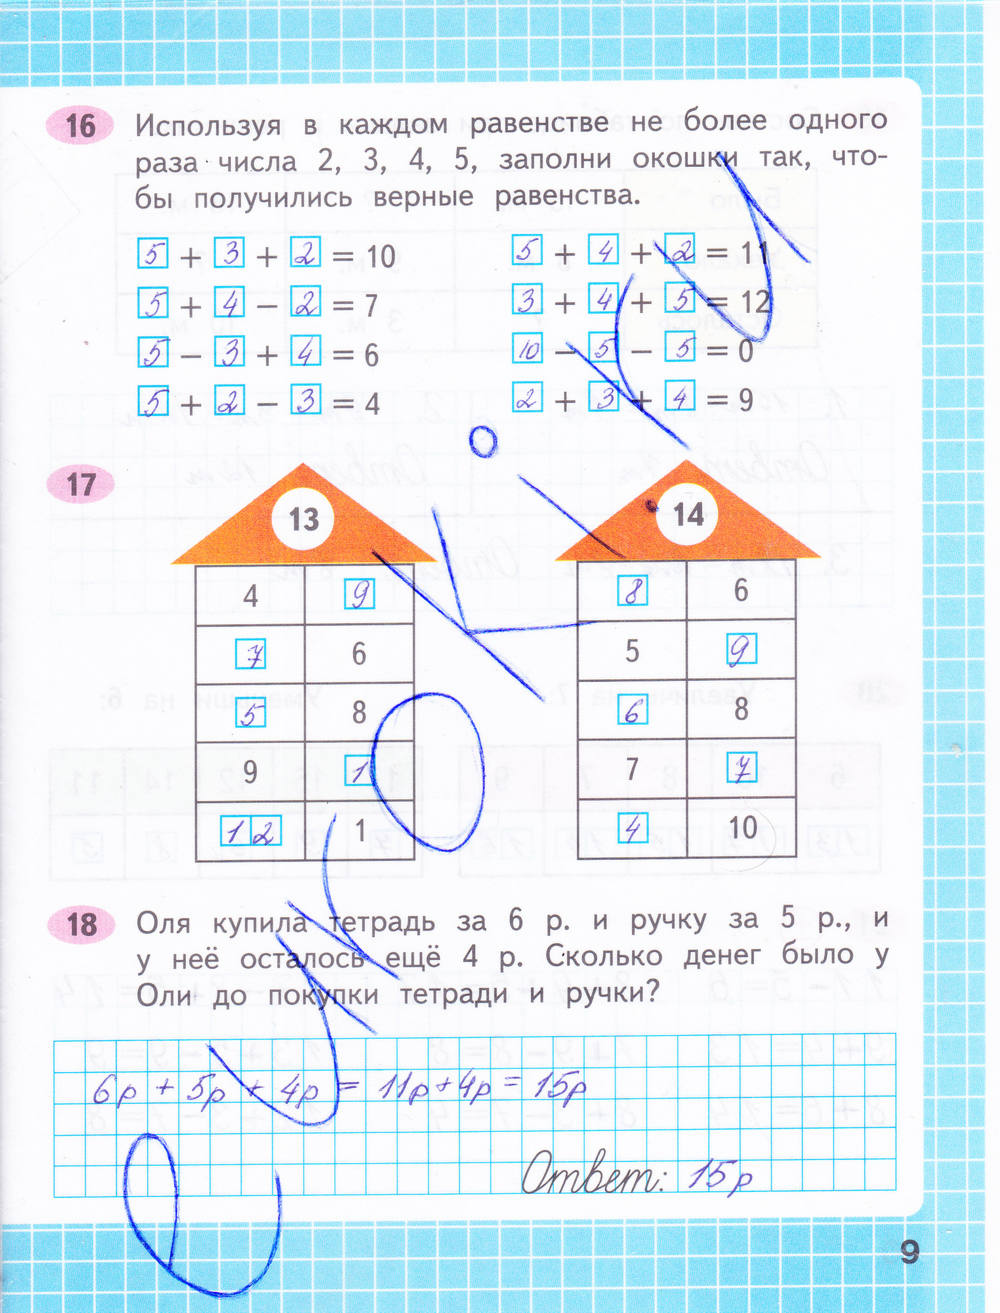 16 Используя в каждом равенстве не более одного
раза числа 2, 3, 4, 5, заполни окошки так, что-
бы получились верные равенства.
5 + 3 + 2 = 10 5 + 4 + 2 = 11
5 + 4 − 2 = 7 3 + 4 + 5 = 12
5 − 3 + 4 = 6 10 − 5 − 5 = 0
5 + 2 − 3 = 4 2 + 3 + 4 = 9
17
13
4 9
7 6
5 8
9 1
12 1
14
8 6
5 9
6 8
7 7
4 10
18 Оля купила тетрадь за 6 р. и ручку за 5 р., и
у неё осталось ещё 4 р. Сколько денег было у
Оли до покупки тетради и ручки?
6р + 5р + 4р = 11р+4р = 15р
Ответ: 15р
9